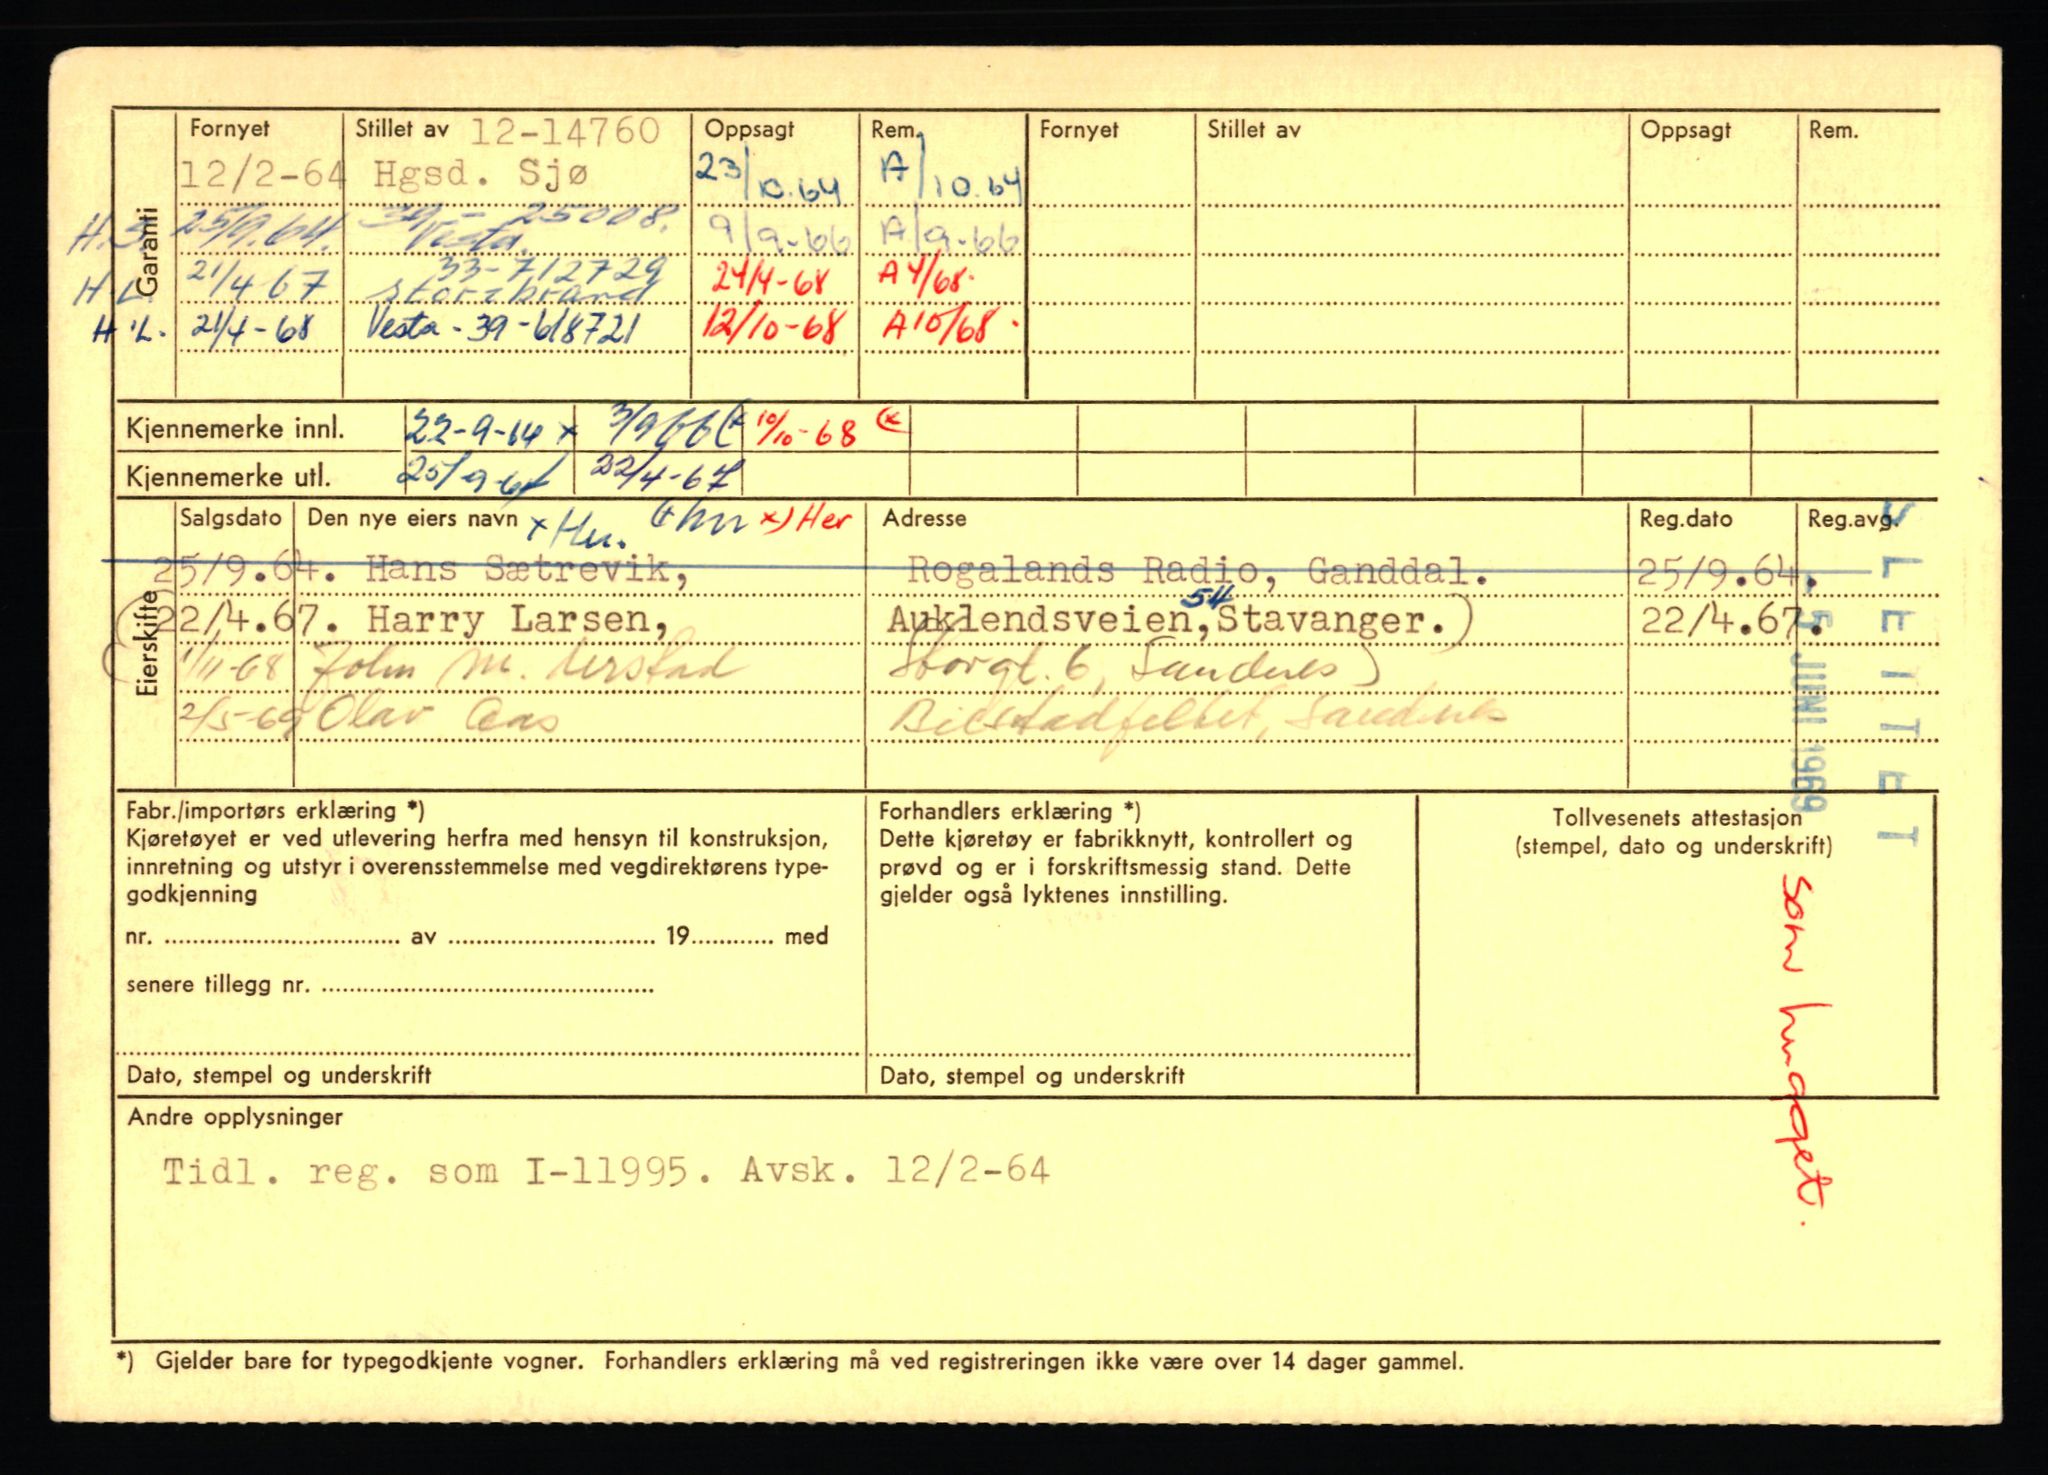 Garanti
Fornyet Stillet av 12-14760 Oppsagt Rem. Fornyet Stillet av Oppsagt Rem.
12/2-64 Hgsd. Sjø 23/10.64 A/10.64
H.S. 25/9.64. 39-25008. Vesta. 9/9-66 A/9-66
H.L. 21/4 67 33-712729 Storebrand 24/4-68 A4/68.
H.L. 21/4-68 Vesta-39-618721 12/10-68 A10/68.
Kjennemerke innl. 22-9-64 x 3/9 66 (x 10/10-68 (x
Kjennemerke utl. 25/9-64 22/4-67
Eierskifte
Salgsdato Den nye eiers navn x Hu. (x hu x) Her Adresse Reg.dato Reg.avg.
25/9.64. Hans Sætrevik, Rogalands Radio, Ganddal. 25/9.64.
22/4.67. Harry Larsen, Auklendsveien, 54 Stavanger.) 22/4.67.
1/11-68 John M. Uerstad Storgt. 6, Sandnes)
2/5-69 Olav Aas Bilstadfeltet, Sandnes
SLETTET
5 JUNI 1969
som hugget.
Fabr./importørs erklæring *)
Kjøretøyet er ved utlevering herfra med hensyn til konstruksjon,
innretning og utstyr i overensstemmelse med vegdirektørens type-
godkjenning
nr. ........ av ........ 19........ med
senere tillegg nr. ........
Dato, stempel og underskrift
Forhandlers erklæring *)
Dette kjøretøy er fabrikknytt, kontrollert og
prøvd og er i forskriftsmessig stand. Dette
gjelder også lyktenes innstilling.
Dato, stempel og underskrift
Tollvesenets attestasjon
(stempel, dato og underskrift)
Andre opplysninger
Tidl. reg. som I-11995. Avsk. 12/2-64
*) Gjelder bare for typegodkjente vogner. Forhandlers erklæring må ved registreringen ikke være over 14 dager gammel.